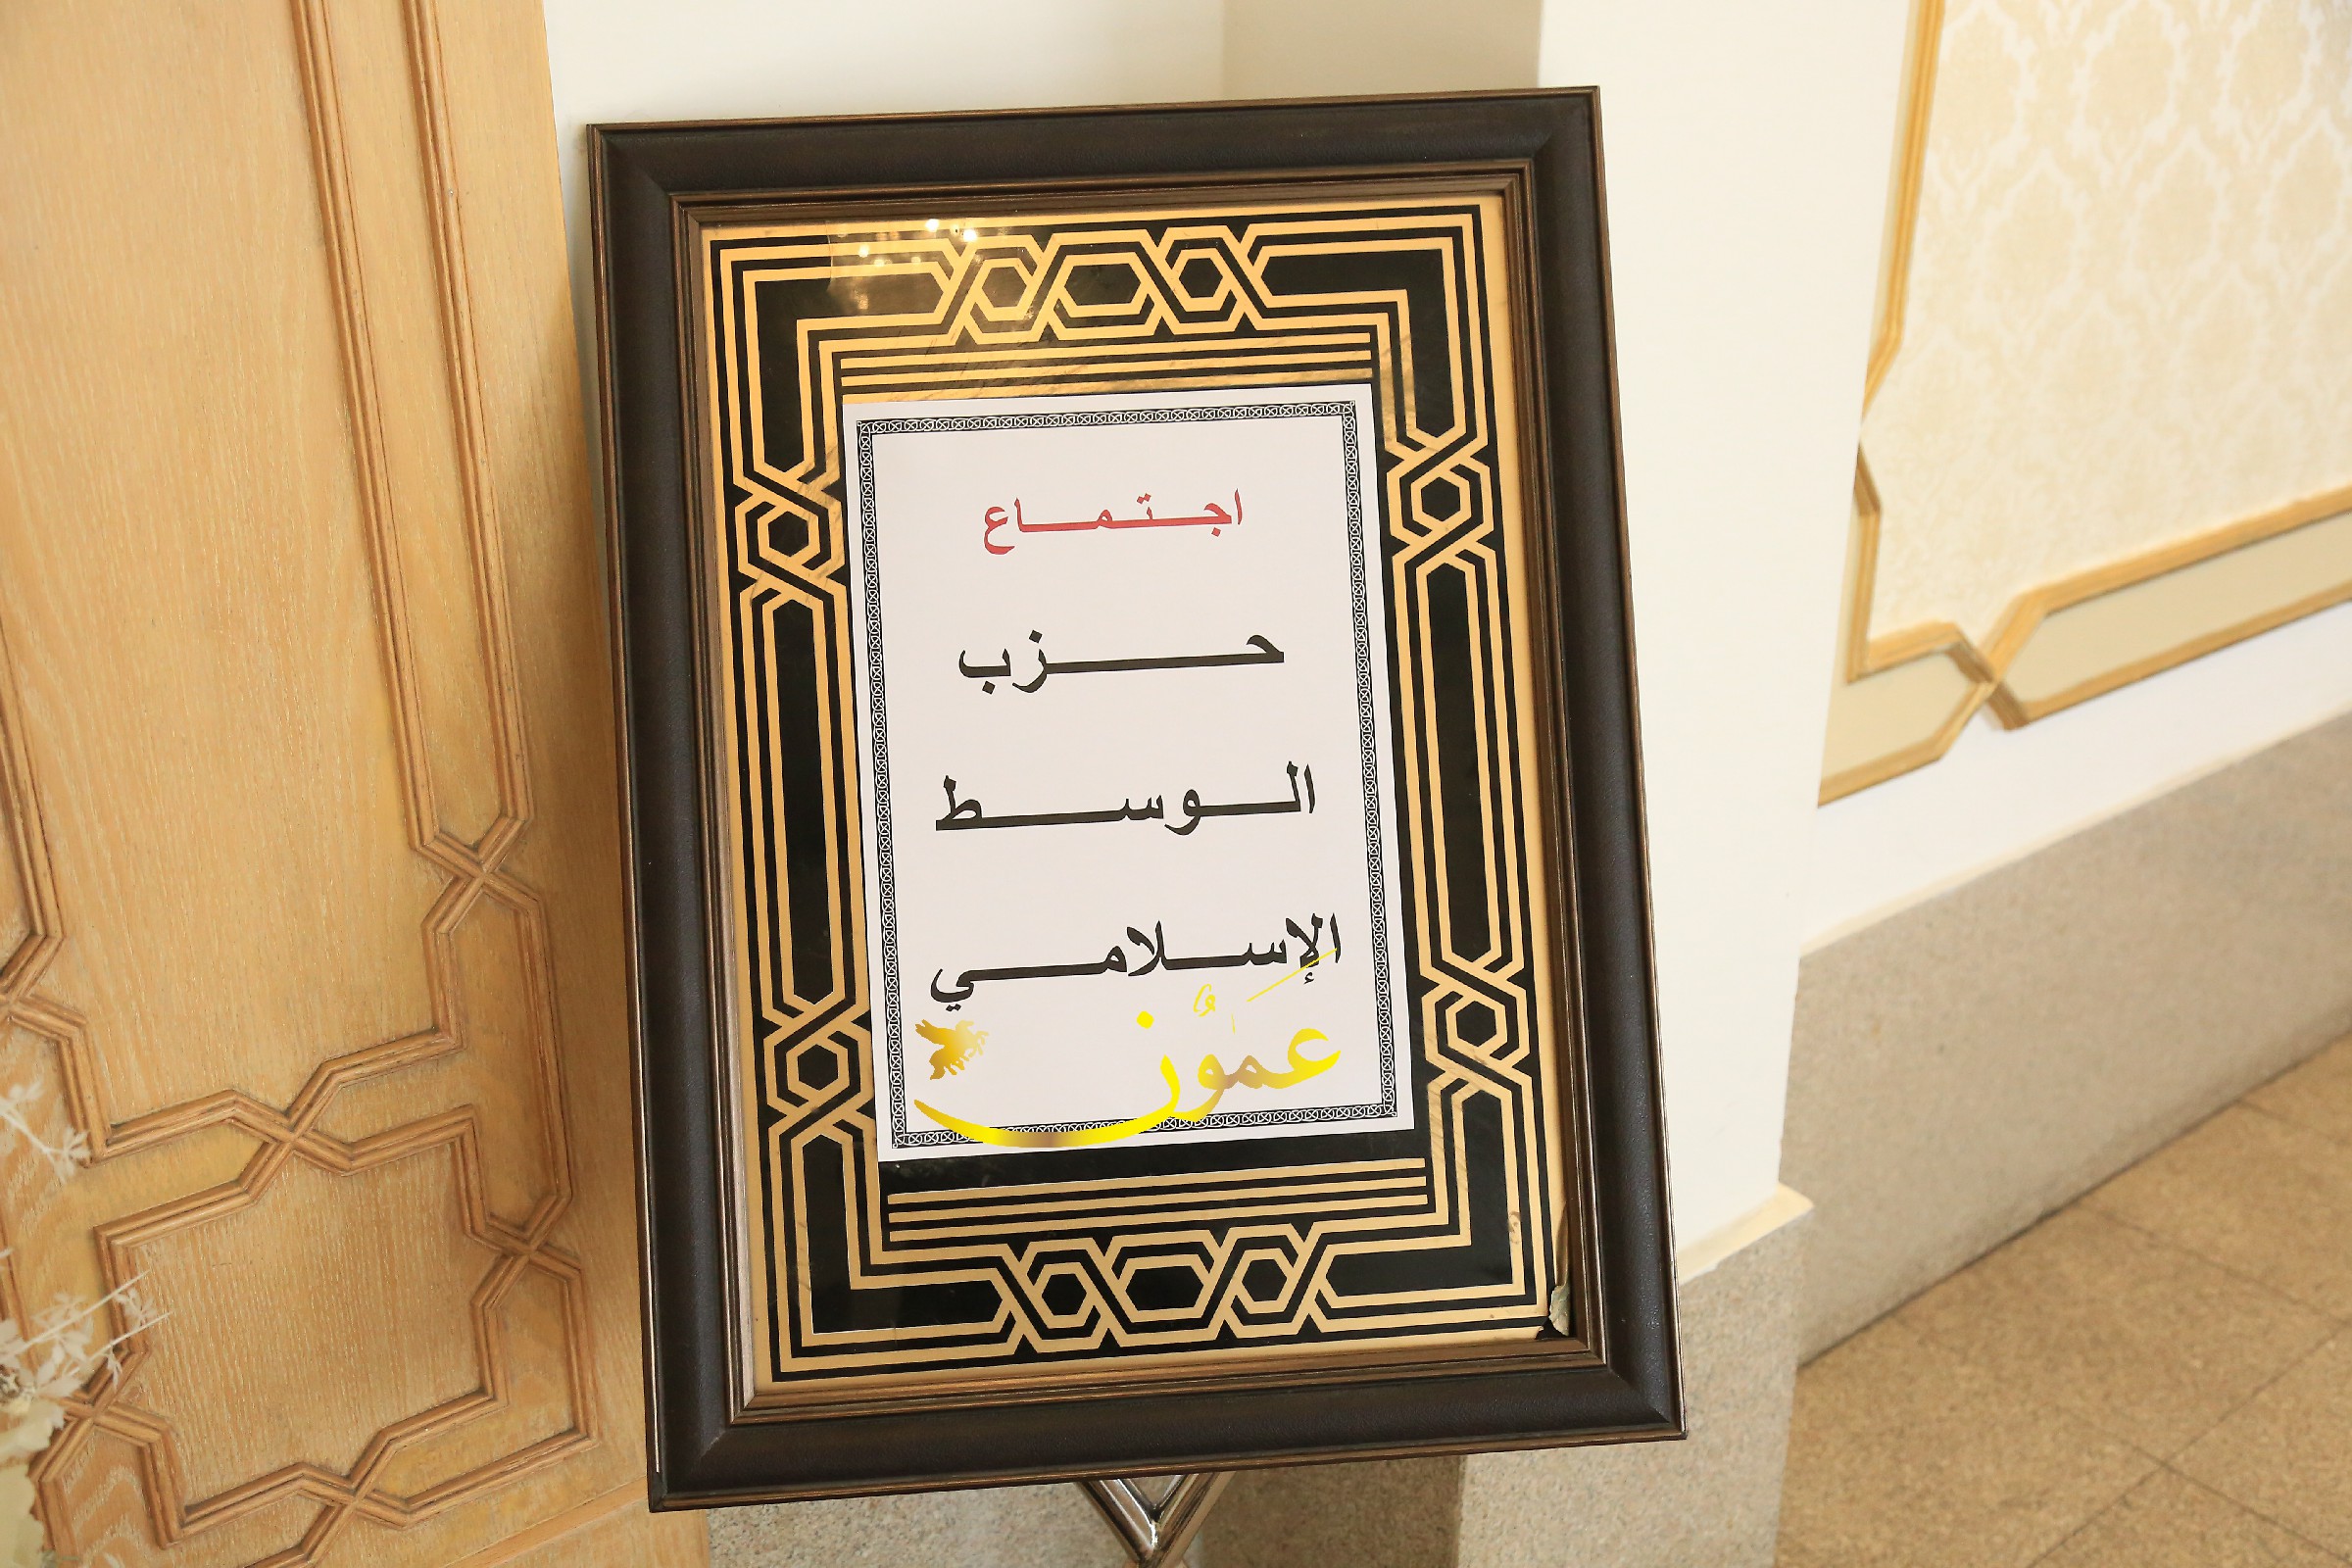 اجتماع
حزب
الوسط
الإسلامي
عمون